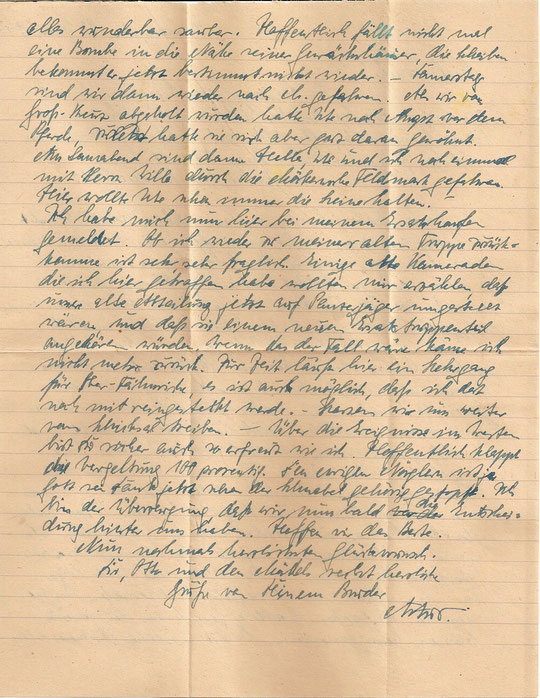 alles wunderbar sauber. Hoffentlich fällt nicht mal
eine Bombe in die Nähe seiner Gewächshäuser, die Scheiben
bekommt er jetzt bestimmt nicht wieder. –
sind wir dann wieder nach gefahren. Als wir von
Groß-Kreuz abgeholt wurden hatte Ute noch Angst vor dem
Pferde, hatte sie sich aber ganz daran gewöhnt.
Am Sonnabend sind dann Ute und ich noch einmal
mit Herrn durch die Feldmark gefahren.
Hier wollte Ute schon immer die Leine halten. –
Ich habe mich nun hier bei meinem Ersatzhaufen
gemeldet. Ob ich wieder zu meiner alten Truppe zurück-
komme ist sehr sehr fraglich. Einige alte Kameraden
die ich hier getroffen habe wollten mir erzählen daß
unsere alte Abteilung jetzt auf Panzerjäger umgestellt
wären, und daß sie einem neuen Ersatztruppenteil
angehören würden. Wenn das der Fall wäre käme ich
nicht mehr zurück. Zur Zeit läuft hier ein Lehrgang
für es ist auch möglich, daß ich da
noch mit reingesteckt werde. – Lassen wir uns weiter
vom Schicksal treiben. – Über die Ereignisse im Westen
bist Du sicher auch so erfreut wie ich. Hoffentlich klappt
die Vergeltung 100 prozentig. Den ewigen Nörglern ist ja
Gott sei Dank jetzt schon der Schnabel gehörig gestopft. Ich
bin der Überzeugung daß wir nun bald die Entschei-
dung hinter uns haben. Hoffen wir das Beste.
Nun nochmals herzlichsten Glückwunsch.
Dir, Otto und den Mädels recht herzliche
Grüße von Deinem Bruder